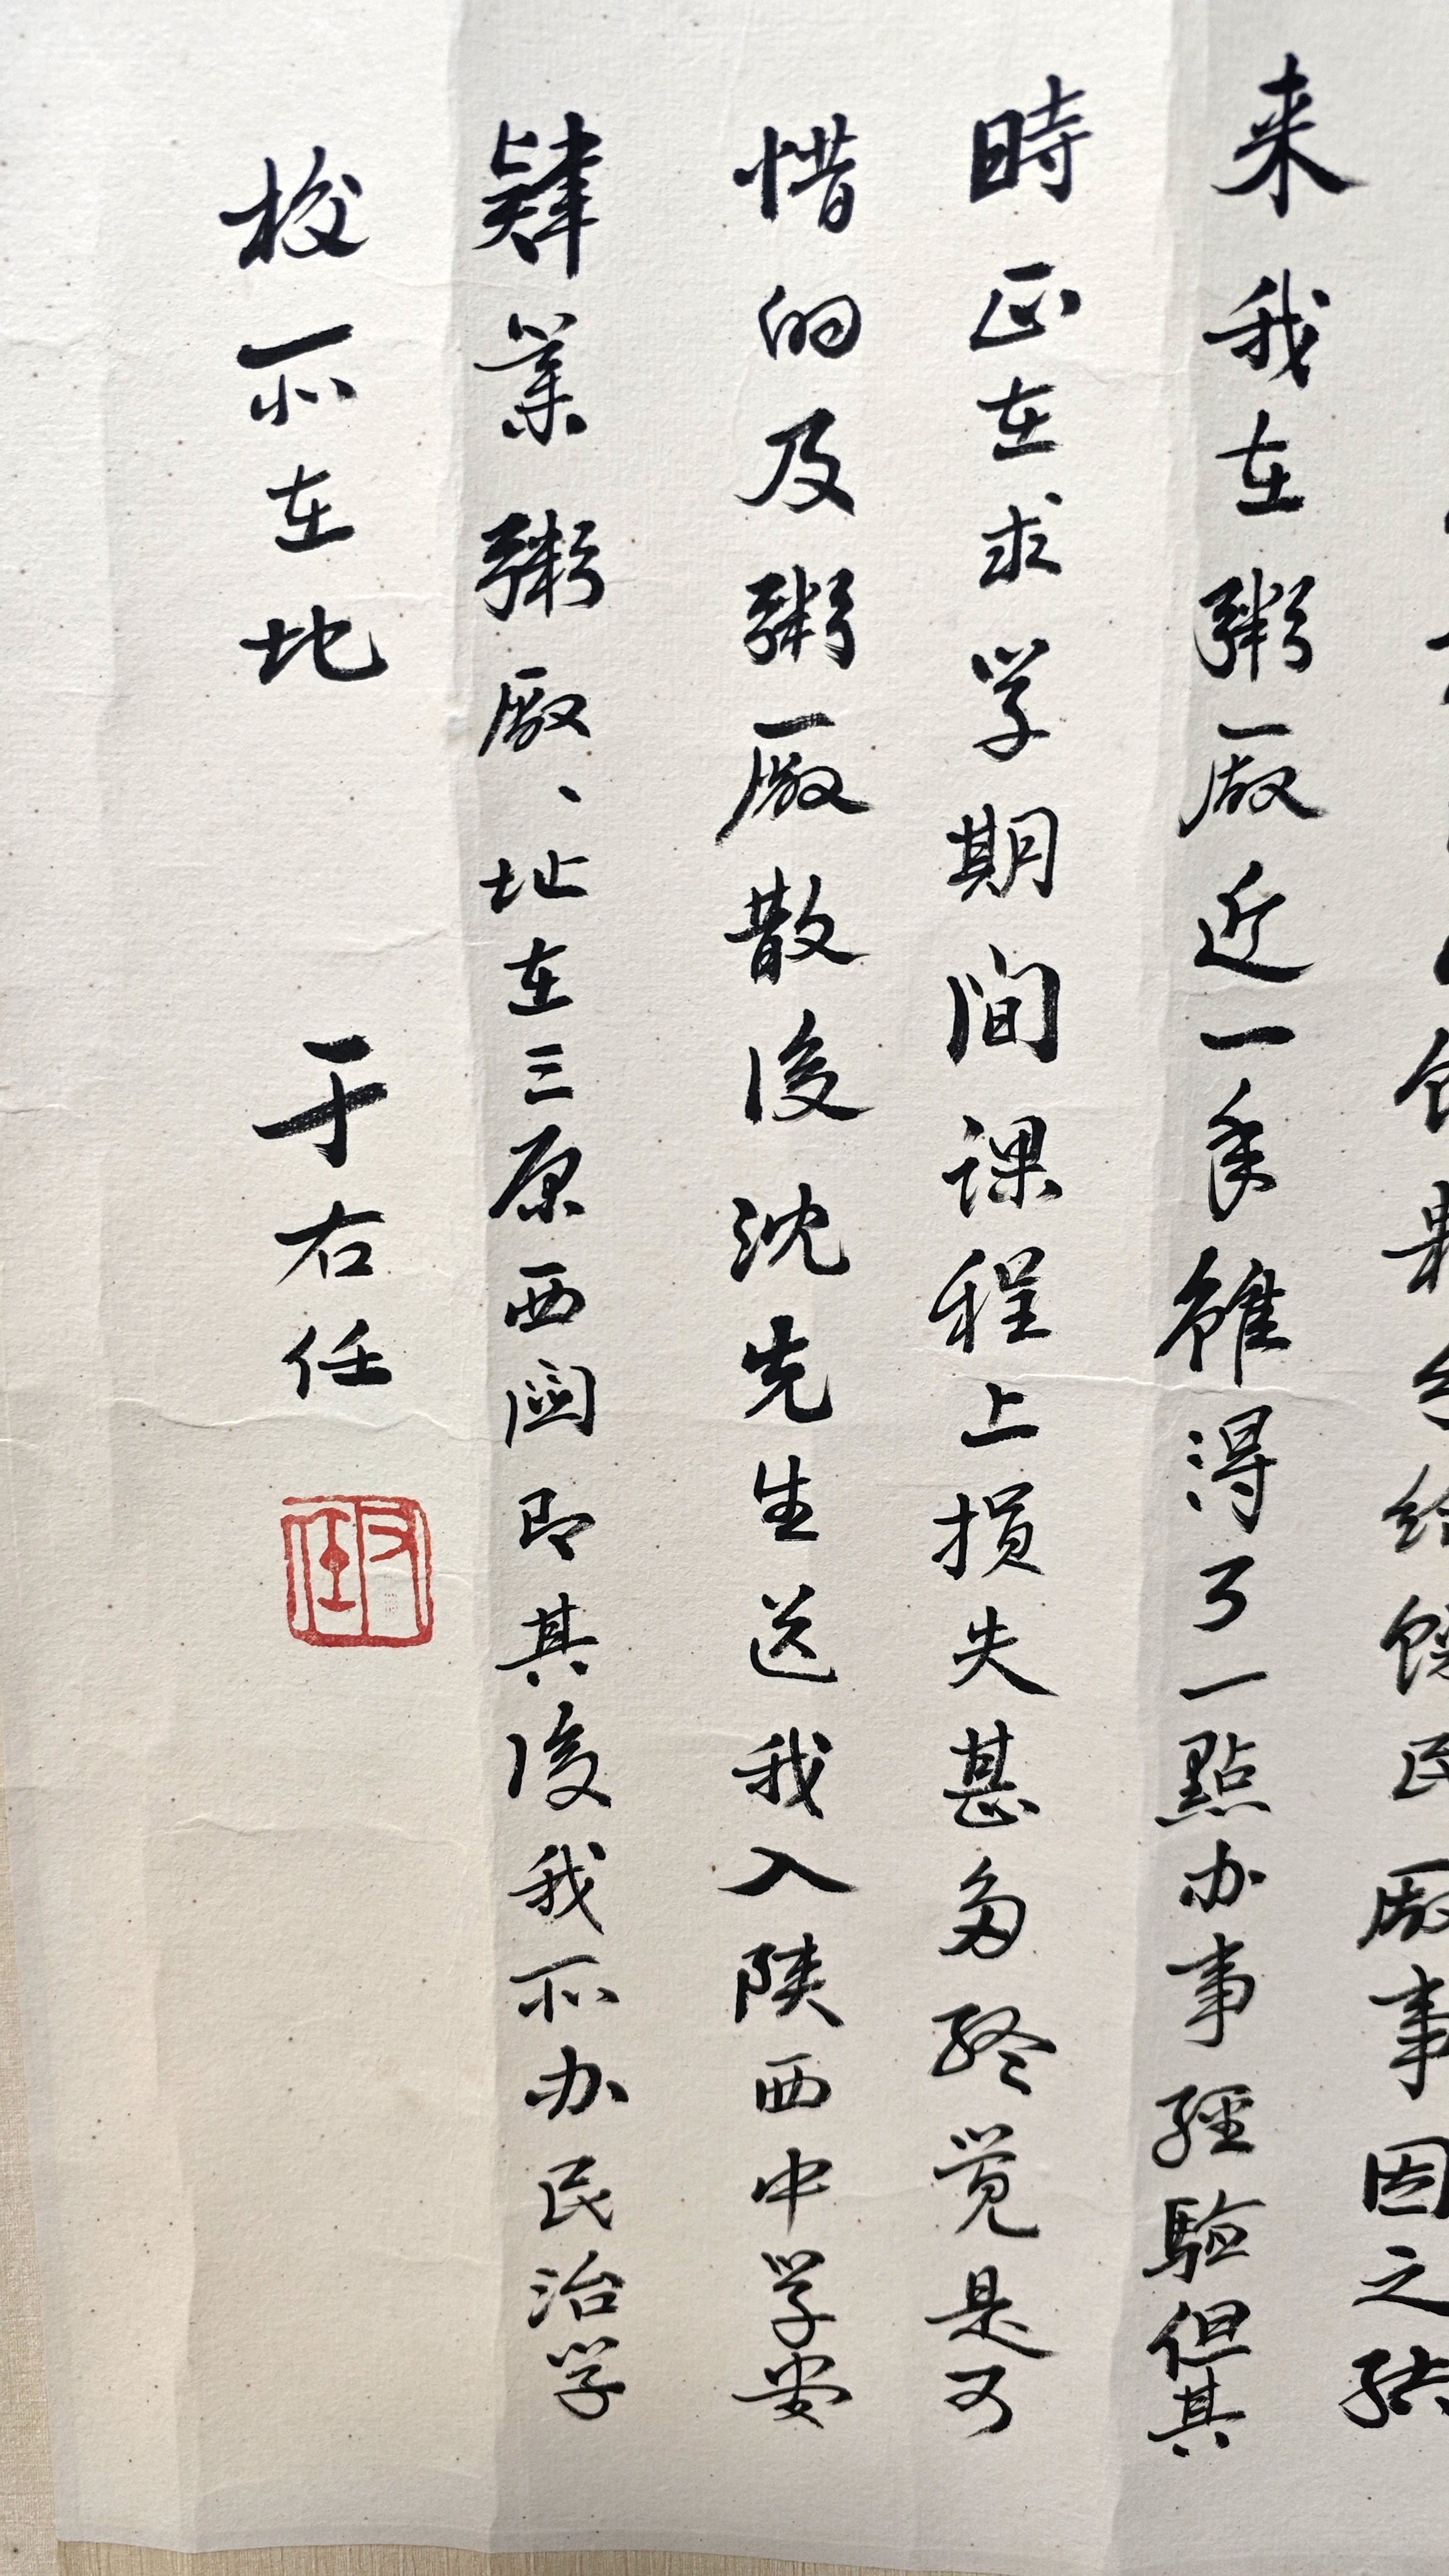 給饑民厰事因之結
来我在粥厰近一年雖得了一點办事經驗但其
時正在求学期间课程上损失甚多终觉是可
惜的及粥厰散後沈先生送我入陕西中学堂
肄業粥厰、址在三原西関即其後我所办民治学
校所在地
于右任